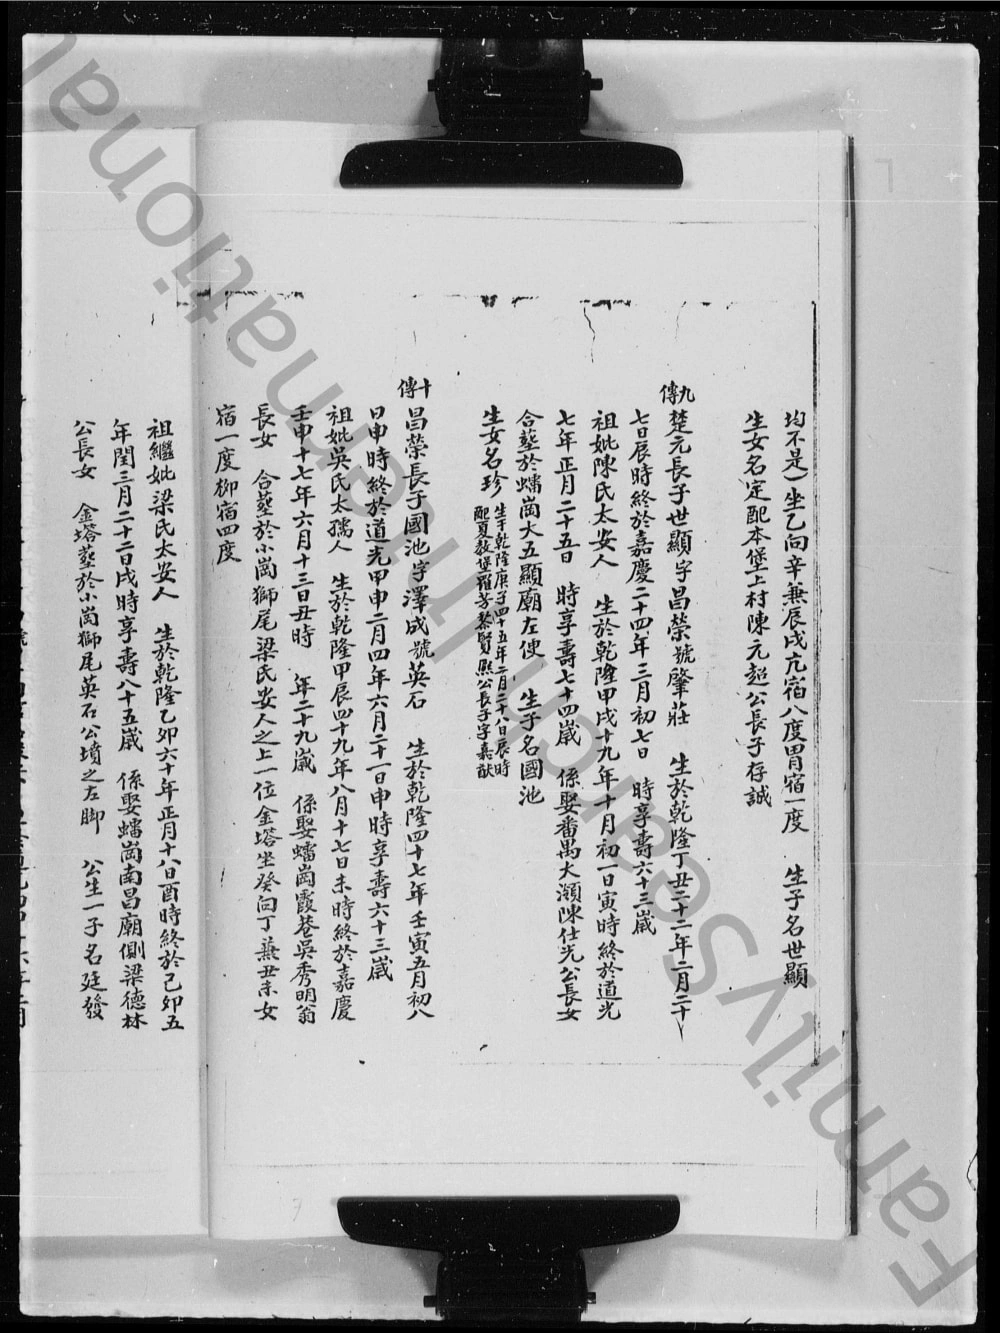 均不是)坐乙向辛兼辰戌亢宿八度胃宿一度 生子名世顯
生女名定配本堡上村陳元超公長子存誠
九傳 楚元長子世顯字昌榮號肇莊 生於乾隆丁丑二十二年二月二十
七日辰時終於嘉慶二十四年三月初七日 時享壽六十三歲
祖妣陳氏太安人 生於乾隆甲戌十九年十月初一日寅時終於道光
七年正月二十五日 時享壽七十四歲 係娶番禺大瀕陳仕光公長女
合塟於蟠崗大五顯廟左便 生子名國池
生女名珍 生于乾隆庚子四十五年二月二十八日辰時
配夏教堡羅芳藜賢熙公長子字嘉猷
十傳 昌榮長子國池字澤成號英石 生於乾隆四十七年壬寅五月初八
日申時終於道光甲申二月四年六月二十一日申時享壽六十三歲
祖妣吳氏太孺人 生於乾隆甲辰四十九年八月十七日未時終於嘉慶
壬申十七年六月十三日丑時 年二十九歲 係娶蟠崗霞巷吳秀明翁
長女 合塟於小崗獅尾梁氏安人之上一位金塔坐癸向丁兼丑未女
宿一度柳宿四度
祖繼妣梁氏太安人 生於乾隆乙卯六十年正月十八日酉時終於己卯五
年閏三月二十二日戌時享壽八十五歲 係娶蟠崗南昌廟側梁德林
公長女 金塔塟於小崗獅尾英石公墳之左脚 公生一子名廷發
FamilySearch International